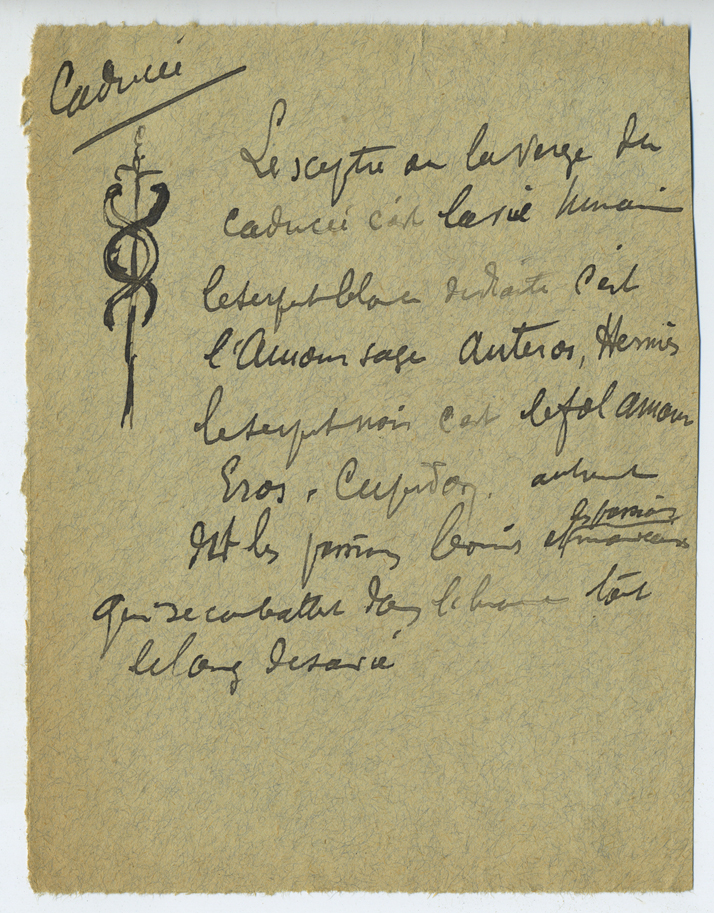 Caducée
Le sceptre ou la verge du
caducée c'est la vie humaine
le serpent blanc de droite c'est
l'Amour sage Anteros, Hermès
le serpent noir c'est le fol amour
Eros, Cupidon. autrement
dit les passions bonnes et
les passions
mauvaises
qui se combattent dans l'homme tout
le long de sa vie